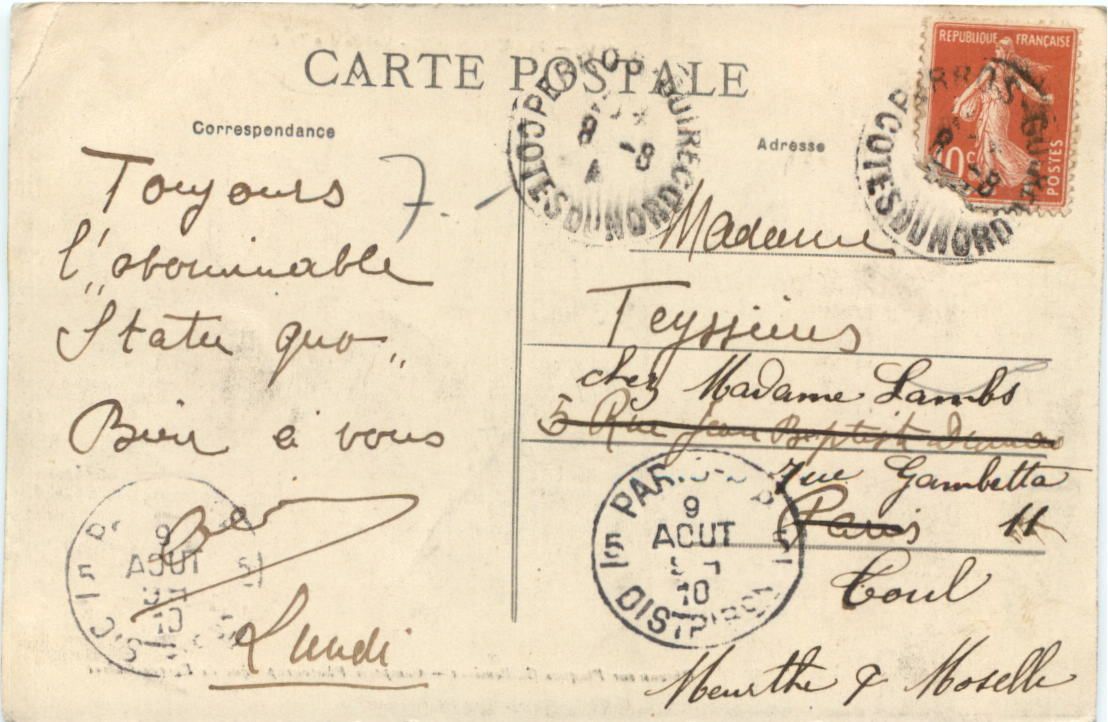 CARTE POSTALE
Correspondance
Toujours
l'abominable
"Statu quo"
Bien à vous
Lundi
Adresse
Madame
Teyssieres
chez Madame Lambs
5 Rue Jean Baptiste Dumas
rue Gambetta
Paris 11
Toul
Meurthe & Moselle
REPUBLIQUE FRANÇAISE
10c
POSTES
PERROS GUIREC
COTES DU NORD
8 -8
COTES DU NORD
8 -8
PARIS
9
AOUT
10
DISTRIBON
9
AOUT
10